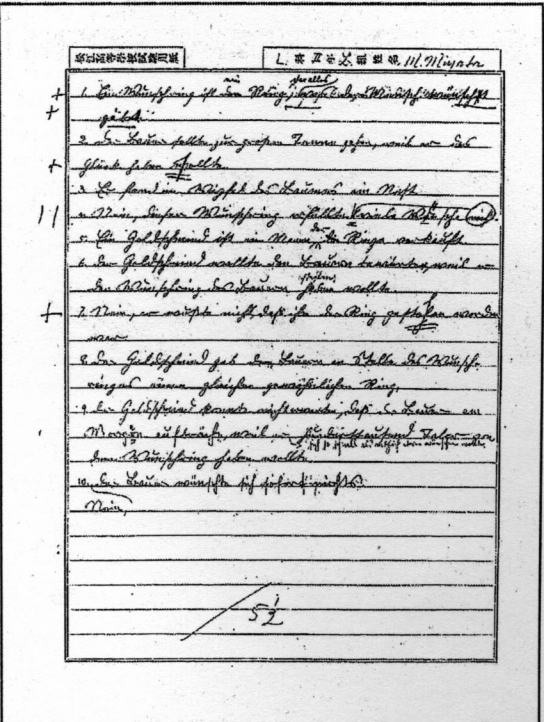 松江高等学校試験用紙
L. 科 学年 組 姓名 M. Miyata
1. Ein Wunschring ist ein Ring, der alles
gäbe.
2. Der Bauer sollte zur großen Tanne gehen, weil er das
Glück haben wollte.
3. Es stand im Wipfel des Baumes ein Nest.
4. Nein, dieser Wunschring erfüllte viele Wünsche nicht.
5. Ein Goldschmied ist ein Mann, der Ringe verkauft.
6. Der Goldschmied wollte den Bauern bewirten, weil er
den Wunschring des Bauern haben wollte.
7. Nein, er wußte nicht, daß ihm der Ring gestohlen worden
war.
8. Der Goldschmied gab dem Bauern an Stelle des Wunsch-
ringes einen gleichen gewöhnlichen Ring.
9. Der Goldschmied konnte nicht warten, daß der Bauer am
Morgen aufbräche, weil er hunderttausend Taler von
dem Wunschring haben wollte.
10. Der Bauer wünschte sich sofort nichts.
Nein,
5 1/2